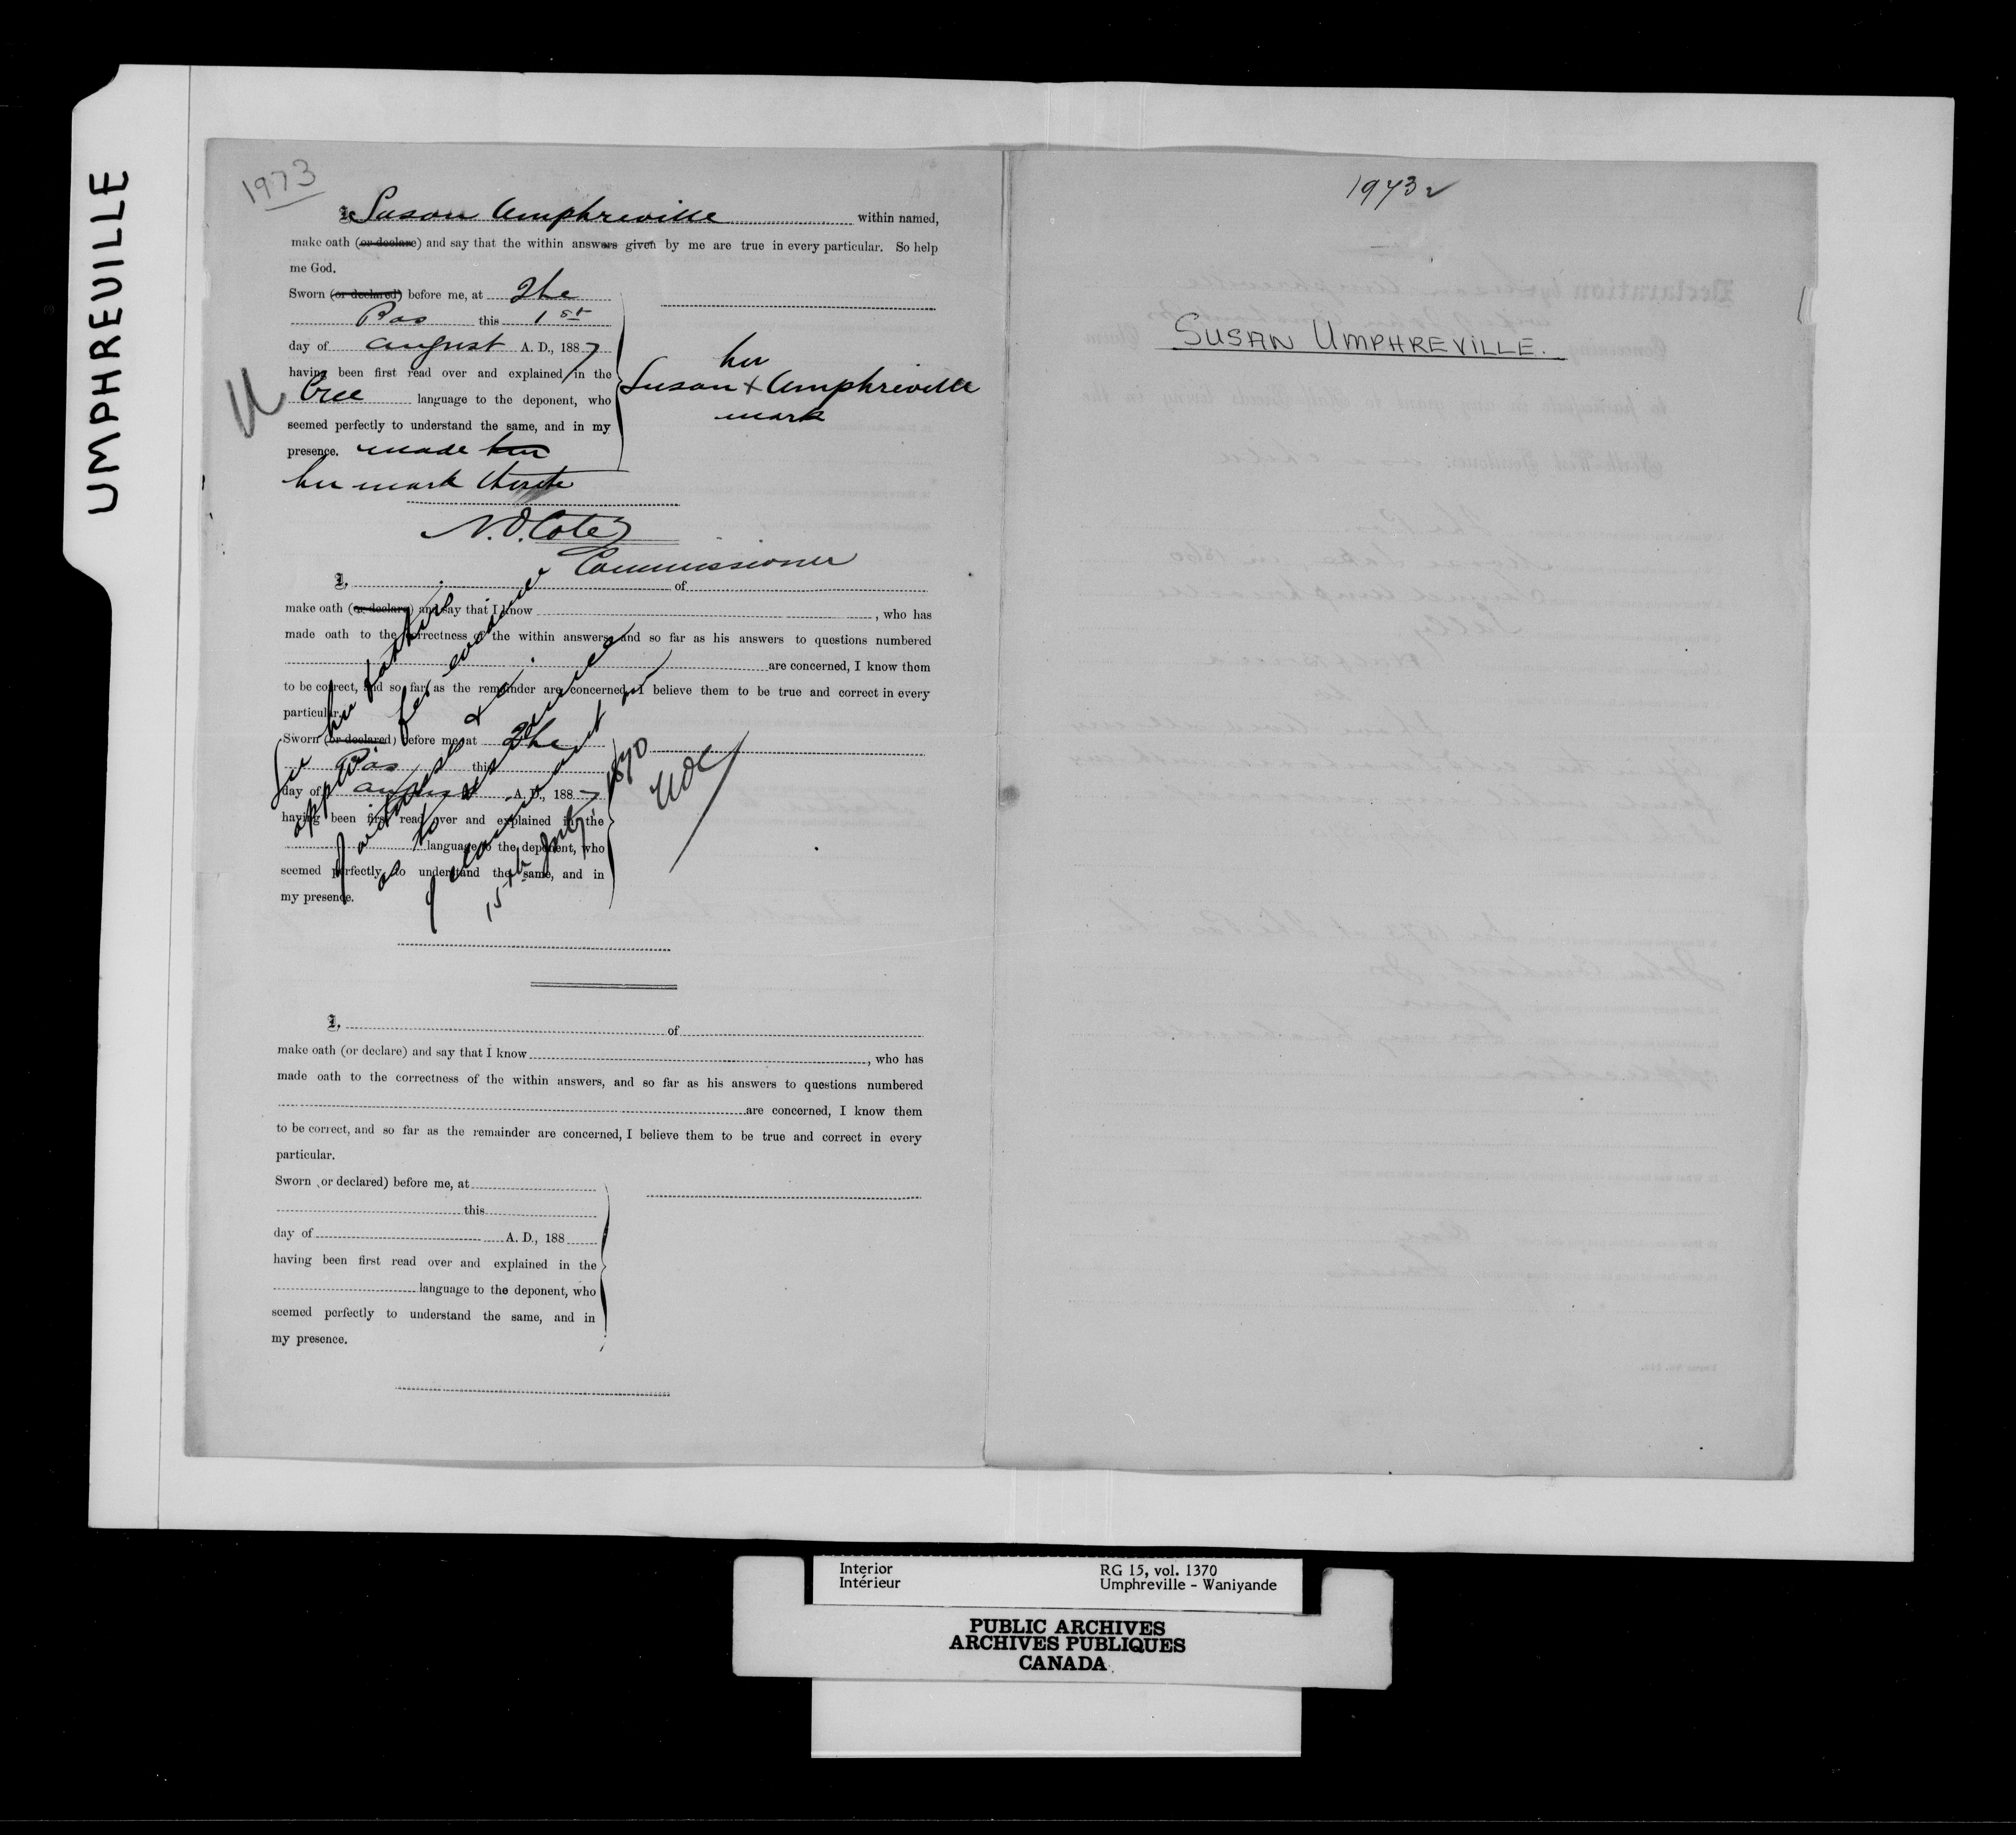 UMPHREVILLE
1973
I, Susan Umphreville within named,
make oath (or declare) and say that the within answers given by me are true in every particular. So help
me God.
Sworn (or declared) before me, at The
Pas this 1st
day of August A. D., 1887
having been first read over and explained in the
Cree language to the deponent, who
seemed perfectly to understand the same, and in my
presence. made her
her mark thereto
her
Susan + Umphreville
mark
N.O. Coté
Commissioner
I, of
make oath (or declare) and say that I know , who has
made oath to the correctness of the within answers, and so far as his answers to questions numbered
are concerned, I know them
to be correct, and so far as the remainder are concerned, I believe them to be true and correct in every
particular.
Sworn (or declared) before me, at The
Pas this
day of August A. D., 1887
having been first read over and explained in the
language to the deponent, who
seemed perfectly to understand the same, and in
my presence.
See her father's
for evidence
of claimant
15th July 1870
NOC
I, of
make oath (or declare) and say that I know , who has
made oath to the correctness of the within answers, and so far as his answers to questions numbered
are concerned, I know them
to be correct, and so far as the remainder are concerned, I believe them to be true and correct in every
particular.
Sworn (or declared) before me, at
this
day of A. D., 188
having been first read over and explained in the
language to the deponent, who
seemed perfectly to understand the same, and in
my presence.
1973
SUSAN UMPHREVILLE.
Interior
Intérieur
RG 15, vol. 1370
Umphreville - Waniyande
PUBLIC ARCHIVES
ARCHIVES PUBLIQUES
CANADA